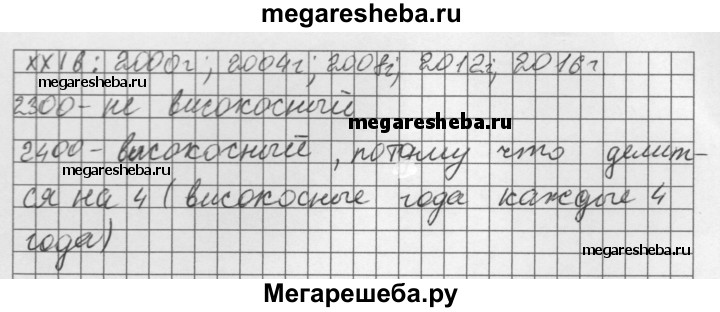 megaresheba.ru
XXI в: 2000г; 2004г; 2008г; 2012г; 2016г
megaresheba.ru
2300 - не високосный
megaresheba.ru
2400 - високосный, потому что делит-
megaresheba.ru
ся на 4 (високосные года каждые 4
года)
megaresheba.ru
Мегарешеба.ру